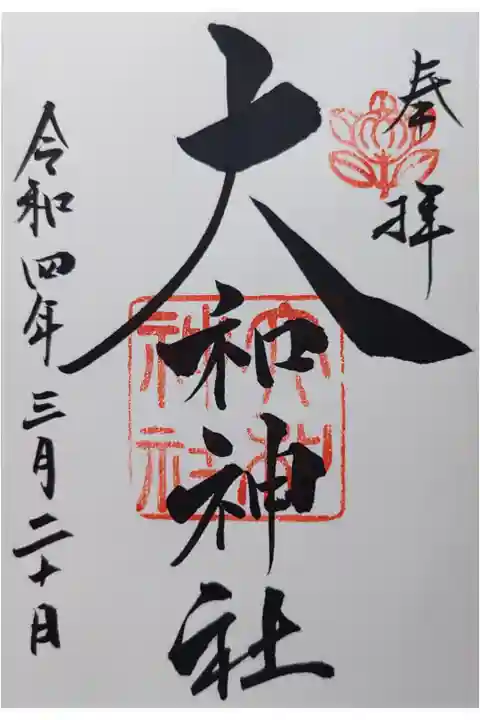 奉拝
大和神社
令和四年三月二十日
大和神社